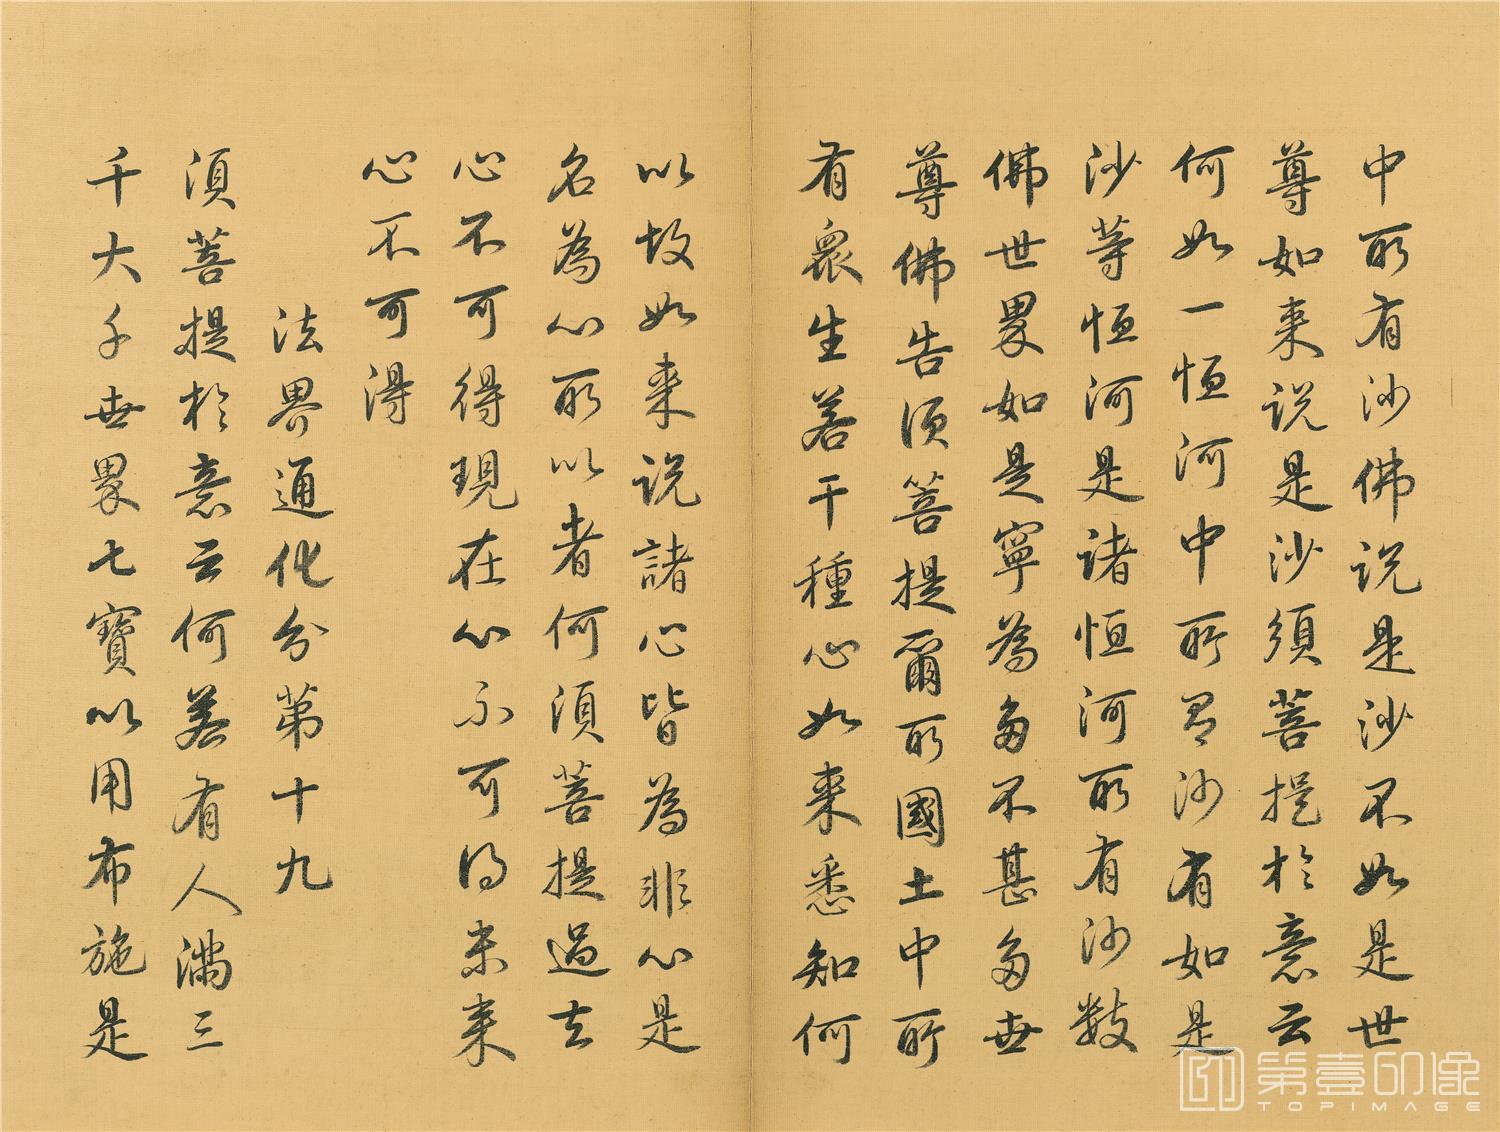 中所有沙佛說是沙不如是世
尊如来說是沙須菩提於意云
何如一恒河中所有沙有如是
沙等恒河是諸恒河所有沙數
佛世界如是寧為多不甚多世
尊佛告須菩提爾所國土中所
有衆生若干種心如来悉知何
以故如来說諸心皆為非心是
名為心所以者何須菩提過去
心不可得現在心不可得未来
心不可得
法界通化分第十九
須菩提於意云何若有人滿三
千大千世界七寶以用布施是
第壹印像
TOPIMAGE